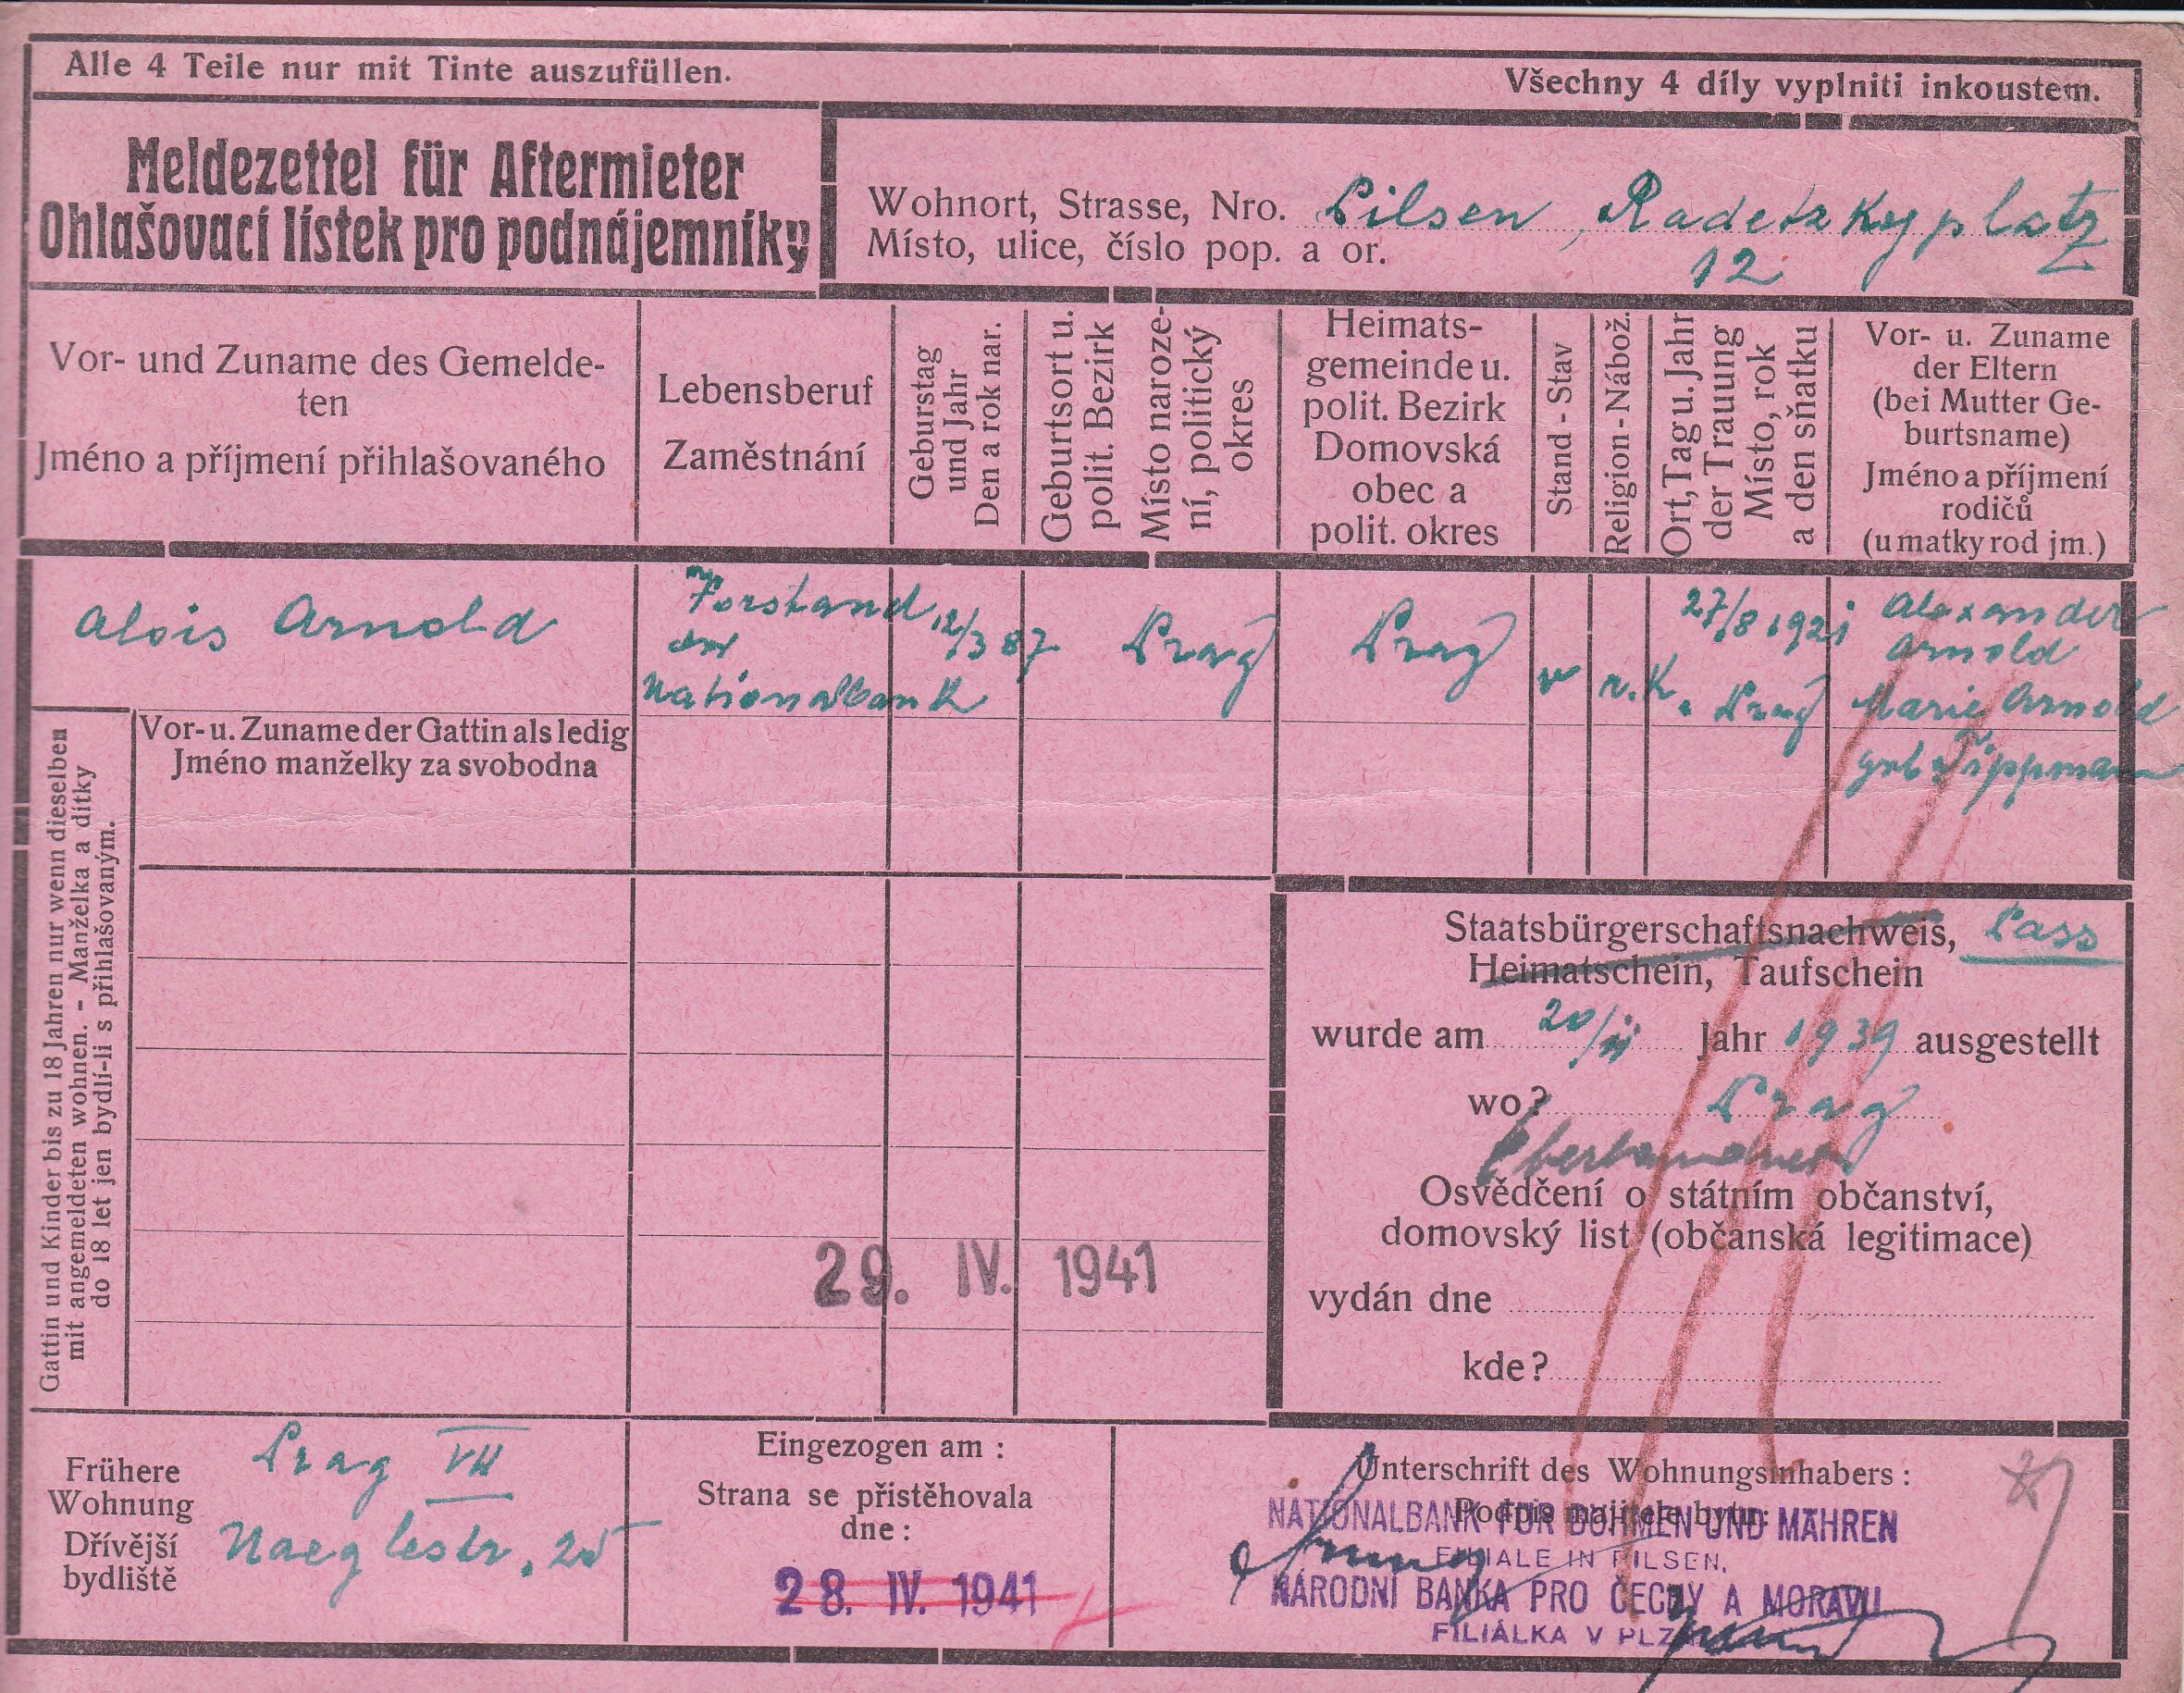 Alle 4 Teile nur mit Tinte auszufüllen.
Všechny 4 díly vyplniti inkoustem.
Meldezettel für Aftermieter
Ohlašovací lístek pro podnájemníky
Wohnort, Strasse, Nro. Pilsen, Radetzkyplatz
Místo, ulice, číslo pop. a or. 12
Vor- und Zuname des Gemelde-
ten
Jméno a příjmení přihlašovaného
Lebensberuf
Zaměstnání
Geburstag
und Jahr
Den a rok nar.
Geburtsort u.
polit. Bezirk
Místo naroze-
ní, politický
okres
Heimats-
gemeinde u.
polit. Bezirk
Domovská
obec a
polit. okres
Stand - Stav
Religion - Nábož.
Ort, Tag u. Jahr
der Trauung
Místo, rok
a den sňatku
Vor- u. Zuname
der Eltern
(bei Mutter Ge-
burtsname)
Jméno a příjmení
rodičů
(u matky rod jm.)
Alois Arnold
Vorstand
der
Nationalbank
12/3 87
Prag
Prag
v
r. K.
27/8 1921
Prag
Alexander
Arnold
Marie Arnold
geb Tippmann
Vor- u. Zuname der Gattin als ledig
Jméno manželky za svobodna
Gattin und Kinder bis zu 18 Jahren nur wenn dieselben
mit angemeldeten wohnen. - Manželka a dítky
do 18 let jen bydlí-li s přihlašovaným.
Staatsbürgerschaftsnachweis, Pass
Heimatschein, Taufschein
wurde am 20/11 Jahr 1939 ausgestellt
wo? Prag
Osvědčení o státním občanství,
domovský list (občanská legitimace)
vydán dne
kde?
29. IV. 1941
Frühere
Wohnung
Dřívější
bydliště
Prag VII
Naeglestr. 25
Eingezogen am :
Strana se přistěhovala
dne :
28. IV. 1941
Unterschrift des Wohnungsinhabers :
Podpis majitele bytu:
NATIONALBANK FÜR BÖHMEN UND MÄHREN
FILIALE IN PILSEN,
NÁRODNÍ BANKA PRO ČECHY A MORAVU
FILIÁLKA V PLZNI